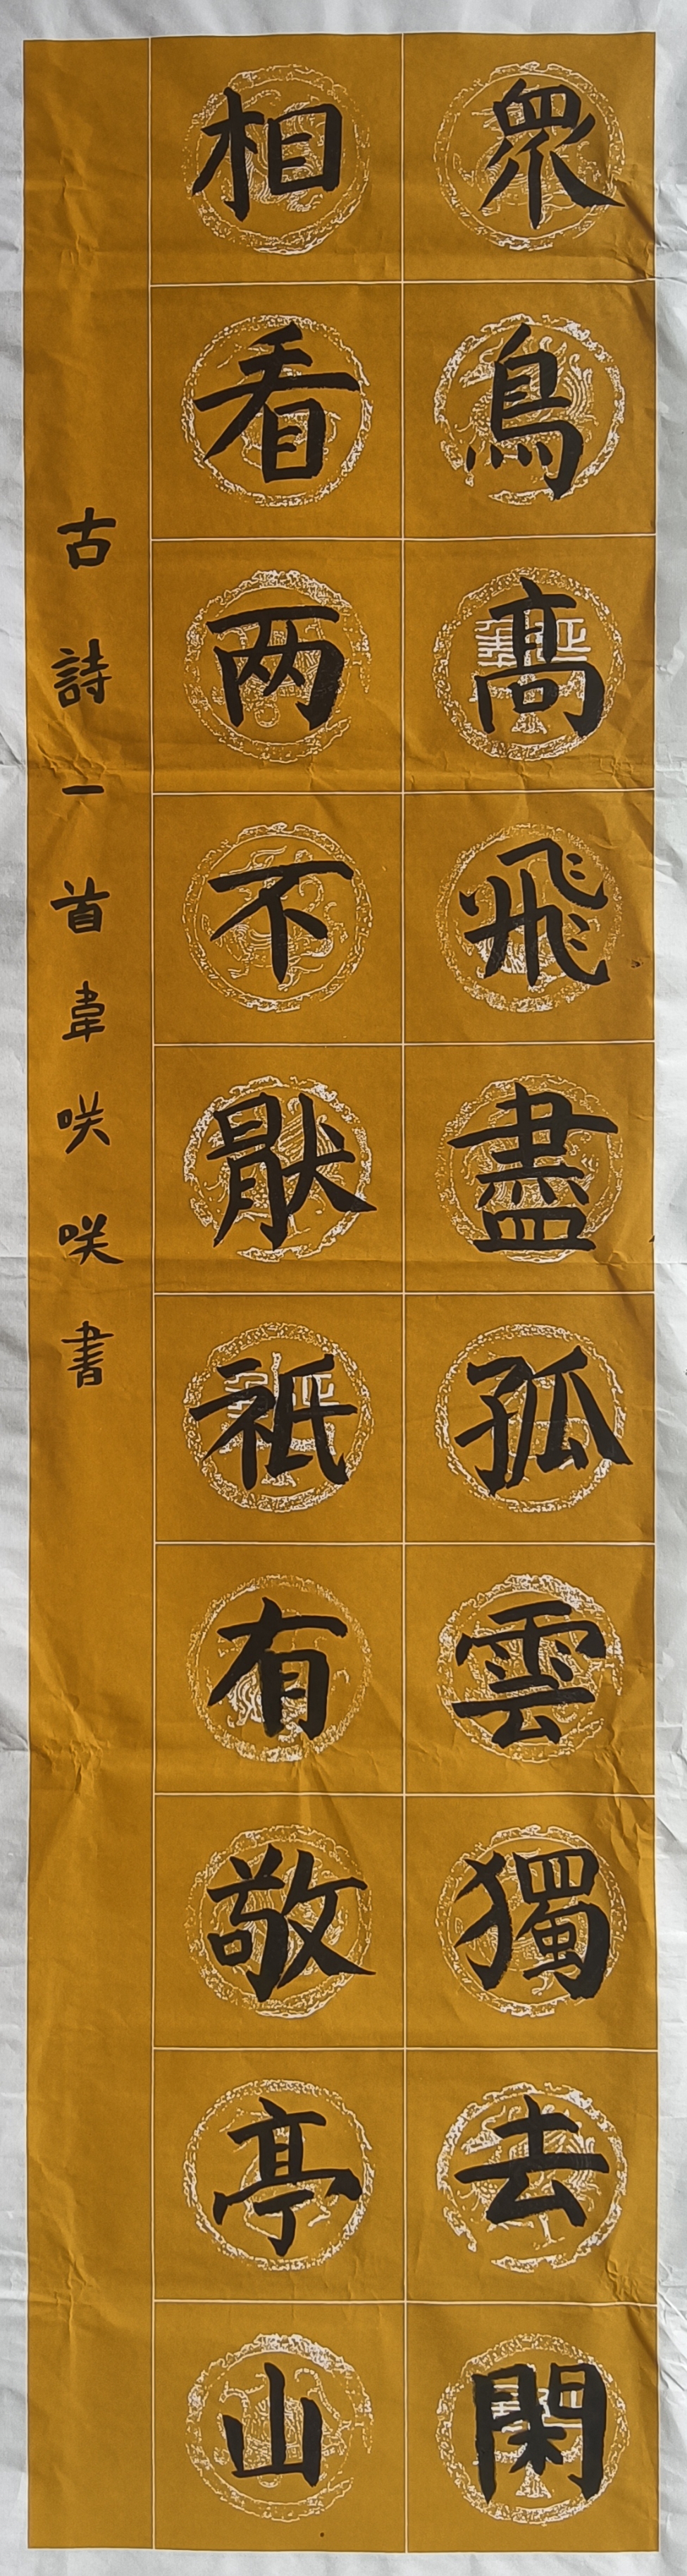 眾鳥髙飛盡孤雲獨去閑
相看两不猒祇有敬亭山
古詩一首韋咲咲書